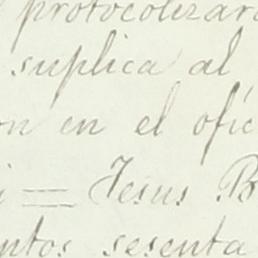 protocolizar
suplica al
on en el ofic
= Jesus B
ntos sesenta